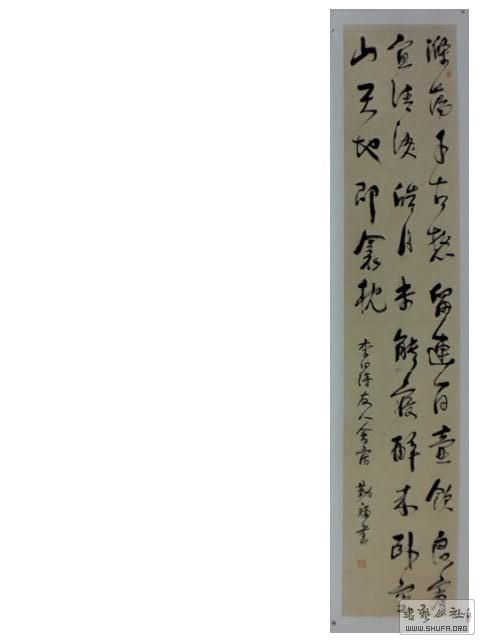 滌蕩千古愁留連百壺飲良宵
宜清談皓月未能寢醉來臥空
山天地即衾枕
李白詩友人會宿
書藝公社
WWW.SHUFA.ORG